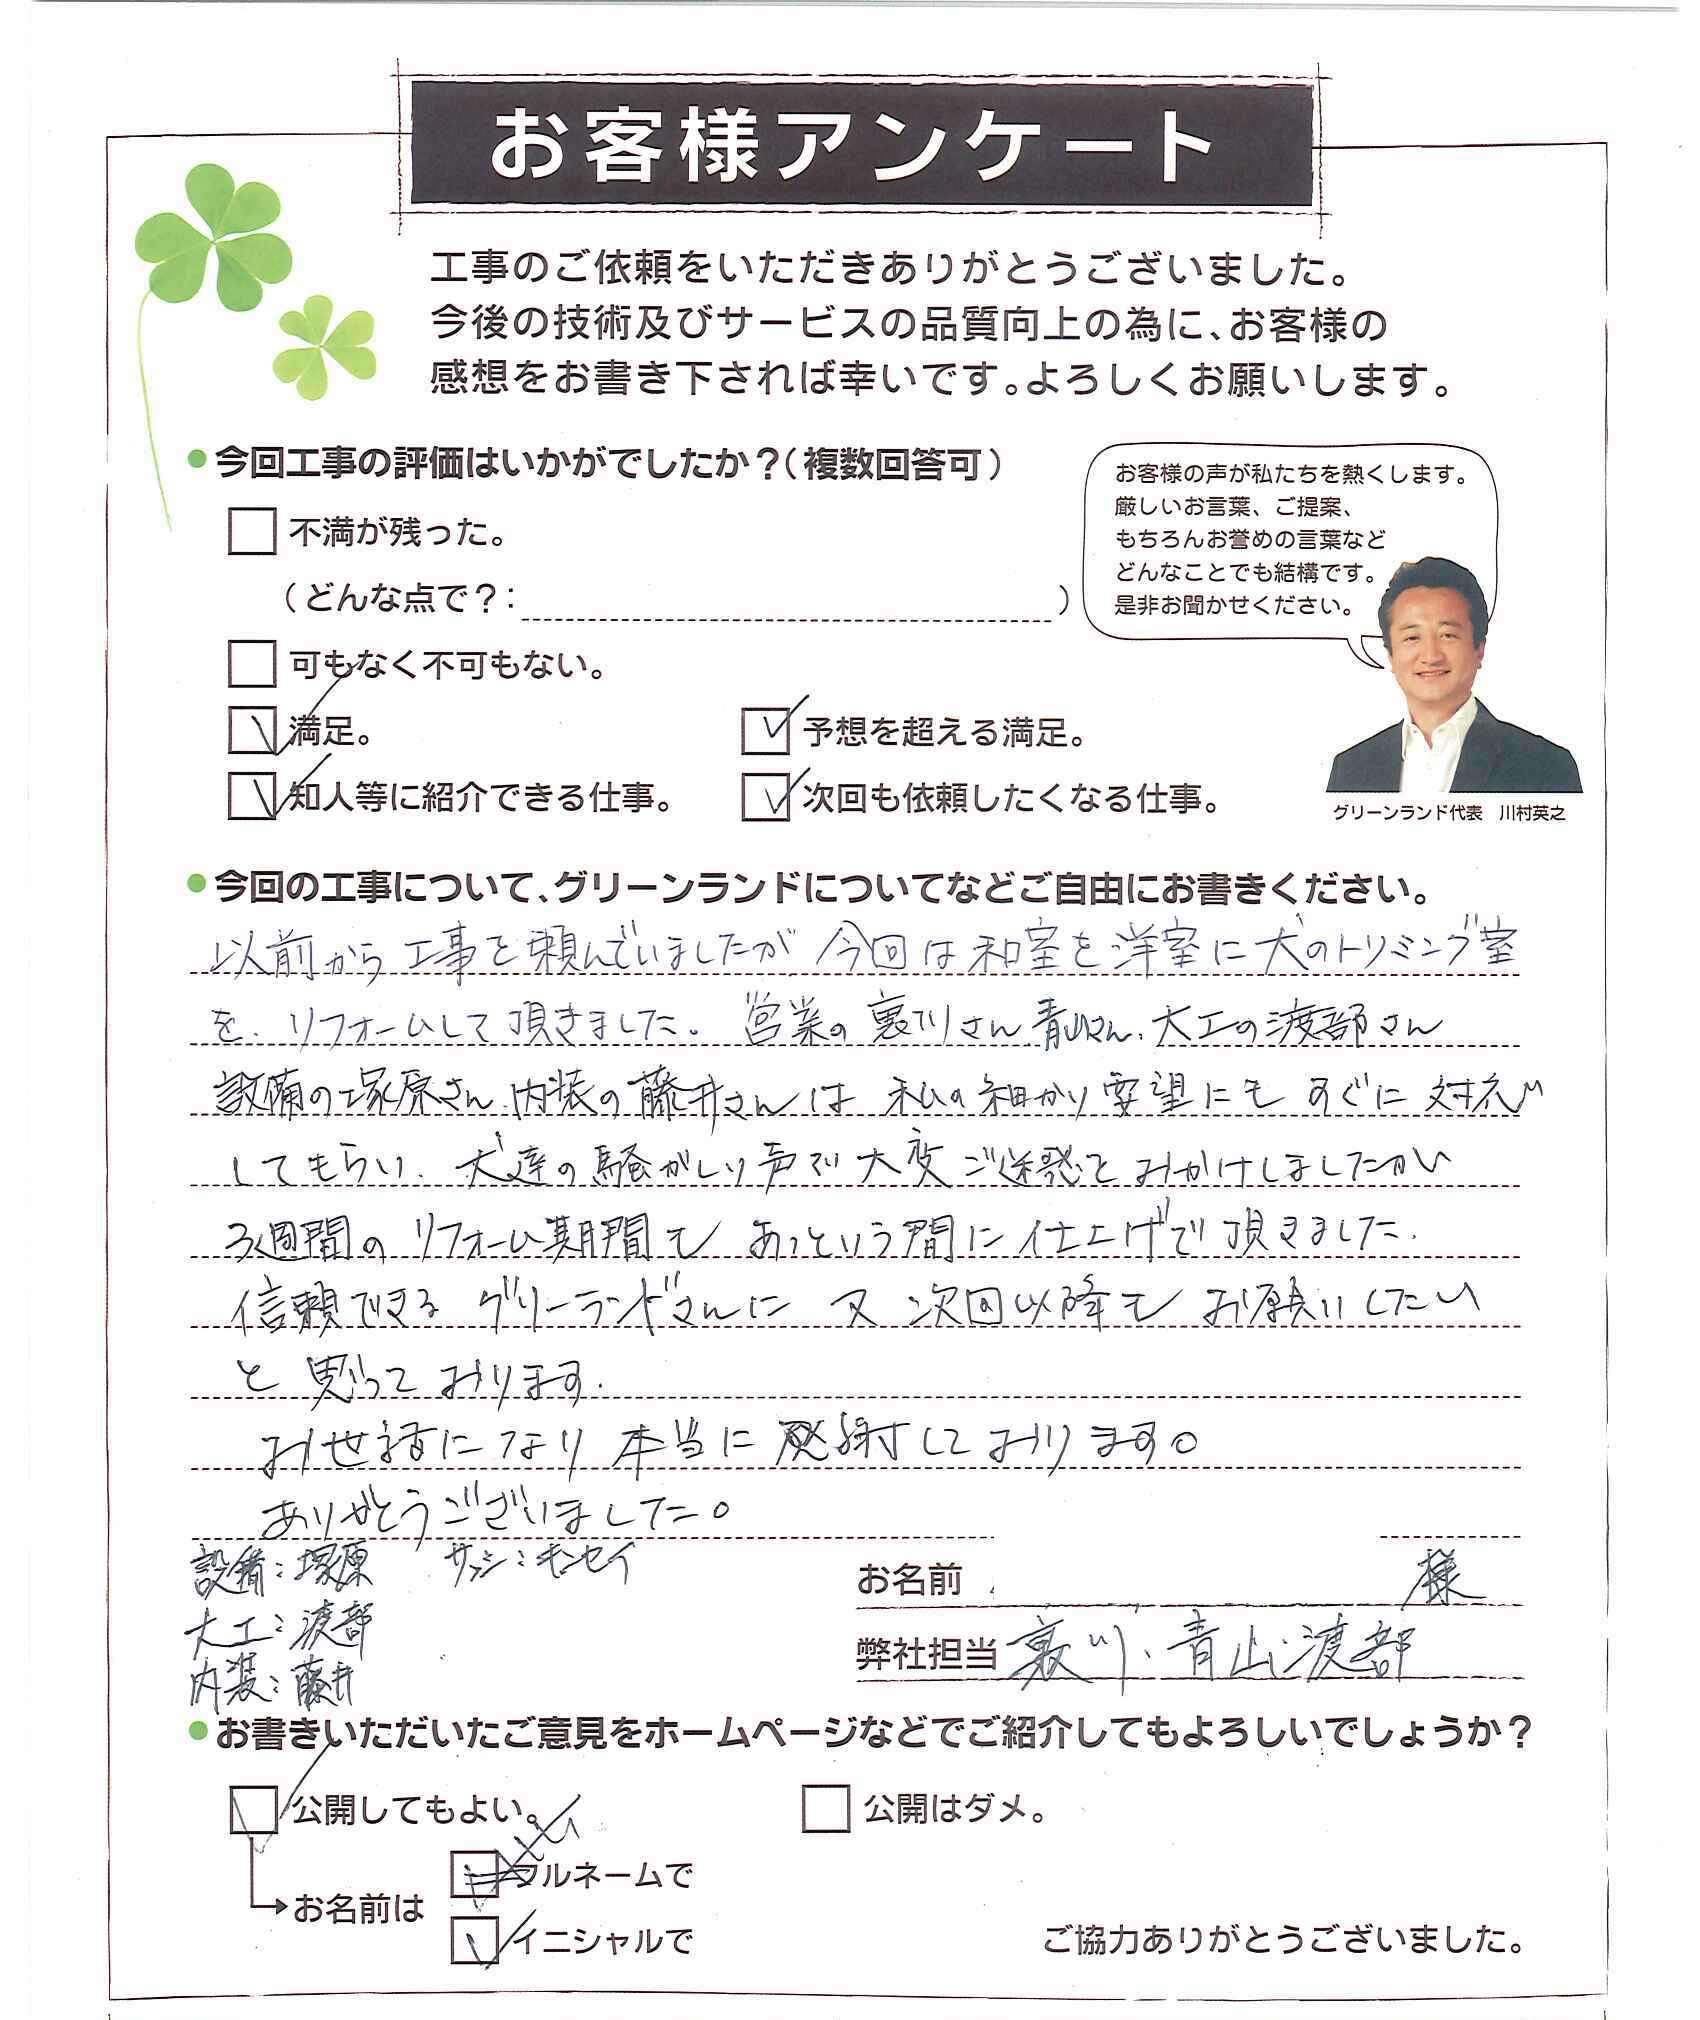 お客様アンケート
工事のご依頼をいただきありがとうございました。
今後の技術及びサービスの品質向上の為に、お客様の
感想をお書き下されば幸いです。よろしくお願いします。
今回工事の評価はいかがでしたか?(複数回答可)
不満が残った。
(どんな点で?: )
可もなく不可もない。
満足。
予想を超える満足。
知人等に紹介できる仕事。
次回も依頼したくなる仕事。
お客様の声が私たちを熱くします。
厳しいお言葉、ご提案、
もちろんお誉めの言葉など
どんなことでも結構です。
是非お聞かせください。
グリーンランド代表 川村英之
今回の工事について、グリーンランドについてなどご自由にお書きください。
以前から工事を頼んでいましたが 今回は和室を洋室に犬のトリミング室
を、リフォームして頂きました。営業の裏川さん青山さん、大工の渡部さん
設備の塚原さん、内装の藤井さんは 私の細かい要望にも すぐに 対応
してもらい、犬達の騒がしい声で大変ご迷惑をおかけしましたが
3週間の リフォーム期間も あっという間に 仕上げて頂きました。
信頼できる グリーンランドさんに 又 次回以降も お願いしたい
と 思って おります。
お世話になり 本当に 感謝しております。
ありがとうございました。
設備:塚原 サッシ:キンセイ
大工:渡部
内装:藤井
お名前 様
弊社担当 裏川、青山、渡部
お書きいただいたご意見をホームページなどでご紹介してもよろしいでしょうか?
公開してもよい。
公開はダメ。
お名前は
フルネームで
イニシャルで
ご協力ありがとうございました。